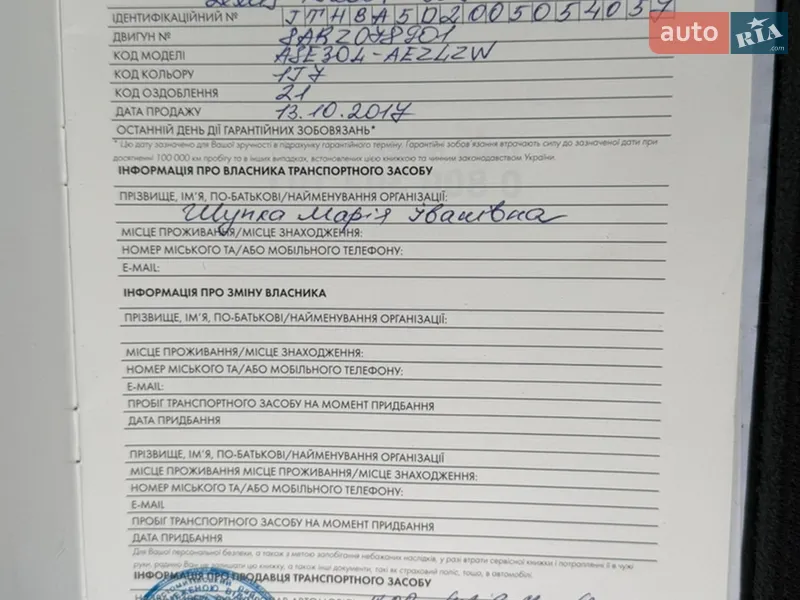 ІДЕНТИФІКАЦІЙНИЙ № JTHBA5020050540 57
ДВИГУН № 8AR2078901
КОД МОДЕЛІ ASE30L-AEZLZW
КОД КОЛЬОРУ 1J7
КОД ОЗДОБЛЕННЯ 21
ДАТА ПРОДАЖУ 13.10.2017
ОСТАННІЙ ДЕНЬ ДІЇ ГАРАНТІЙНИХ ЗОБОВЯЗАНЬ*
* Цю дату зазначено для Вашої зручності в підрахунку гарантійного терміну. Гарантійні зобов'язання втрачають силу до зазначеної дати при
досягненні 100 000 км пробігу та в інших випадках, встановлених цією книжкою та чинним законодавством України.
ІНФОРМАЦІЯ ПРО ВЛАСНИКА ТРАНСПОРТНОГО ЗАСОБУ
ПРІЗВИЩЕ, ІМ'Я, ПО-БАТЬКОВІ/НАЙМЕНУВАННЯ ОРГАНІЗАЦІЇ:
Шупка Марія Іванівна
МІСЦЕ ПРОЖИВАННЯ/МІСЦЕ ЗНАХОДЖЕННЯ:
НОМЕР МІСЬКОГО ТА/АБО МОБІЛЬНОГО ТЕЛЕФОНУ:
E-MAIL:
ІНФОРМАЦІЯ ПРО ЗМІНУ ВЛАСНИКА
ПРІЗВИЩЕ, ІМ'Я, ПО-БАТЬКОВІ/НАЙМЕНУВАННЯ ОРГАНІЗАЦІЇ:
МІСЦЕ ПРОЖИВАННЯ/МІСЦЕ ЗНАХОДЖЕННЯ:
НОМЕР МІСЬКОГО ТА/АБО МОБІЛЬНОГО ТЕЛЕФОНУ:
E-MAIL:
ПРОБІГ ТРАНСПОРТНОГО ЗАСОБУ НА МОМЕНТ ПРИДБАННЯ
ДАТА ПРИДБАННЯ
ПРІЗВИЩЕ, ІМ'Я, ПО-БАТЬКОВІ/НАЙМЕНУВАННЯ ОРГАНІЗАЦІЇ
МІСЦЕ ПРОЖИВАННЯ МІСЦЕ ПРОЖИВАННЯ/МІСЦЕ ЗНАХОДЖЕННЯ:
НОМЕР МІСЬКОГО ТА/АБО МОБІЛЬНОГО ТЕЛЕФОНУ:
E-MAIL
ПРОБІГ ТРАНСПОРТНОГО ЗАСОБУ НА МОМЕНТ ПРИДБАННЯ
ДАТА ПРИДБАННЯ
Для Вашої персональної безпеки, а також з метою запобігання небажаних наслідків, у разі втрати сервісної книжки і потраплянні її в чужі
руки, радимо Вам не залишати цю книжку, а також інші документи, такі як страховий поліс, тощо, в автомобілі.
ІНФОРМАЦІЯ ПРО ПРОДАВЦЯ ТРАНСПОРТНОГО ЗАСОБУ
auto RIA .com